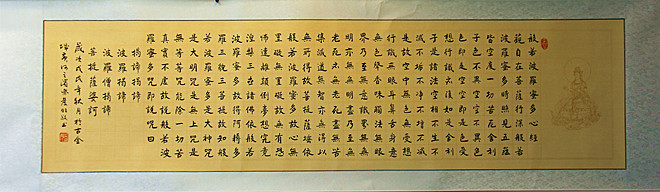 般若波羅蜜多心經
觀自在菩薩行深般若
波羅蜜多時照見五蘊
皆空度一切苦厄舍利
子色不異空空不異色
色即是空空即是色受
想行識亦復如是舍利
子是諸法空相不生不
滅不垢不淨不增不減
是故空中無色無受想
行識無眼耳鼻舌身意
無色聲香味觸法無眼
界乃至無意識界無無
明亦無無明盡乃至無
老死亦無老死盡無苦
集滅道無智亦無得以
無所得故菩提薩埵依
般若波羅蜜多故心無
罣礙無罣礙故無有恐
怖遠離顛倒夢想究竟
涅槃三世諸佛依般若
波羅蜜多故得阿耨多
羅三藐三菩提故知般
若波羅蜜多是大神咒
是大明咒是無上咒是
無等等咒能除一切苦
真實不虛故說般若波
羅蜜多咒即說咒曰
揭諦揭諦
波羅揭諦
波羅僧揭諦
菩提薩婆訶
歲次戊戌年秋月於古金